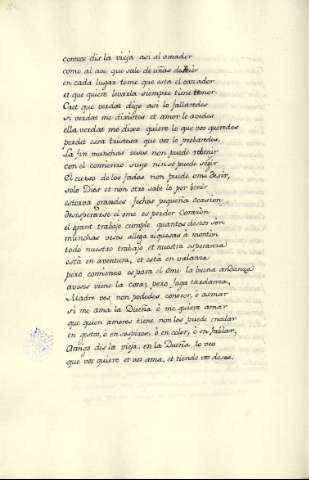 contox dis la vieja asi al amador
como al ave que sale de uñas del
en cada lugar teme que está el cazador
et que quiere levarla siempre tiene temor.
Cret que verdat digo asi lo fallaredes
si verdat me dixistes et amor le avedes
ella verdat me dixo quiere lo que vos queredes
perdet esa tristesa que vos lo probaredes.
La fin munchas veses non puede recudir
con el comienso suyo nin se puede seguir
El curso de los fados non puede ome desir,
solo Dios et non otro sabe lo por benir
estorva grandes fechos pequeña ocasion
desesperarse el ome es perder corazon
el grant trabajo cumple quantos deseos son
munchas veses allega riquesas á montón
todo nuestro trabajo et nuestra esperanza
está en aventura, et está en balanza
pero comienza espera el ome la buena andanza
aveses viene la cosa, pero faga tardanza.
Madre vos non podedes conoser, ó asmar
si me ama la Dueña ó me querrá amar
que quien amores tiene non los puede celar
en gestos, ó en sospiros, ó en color, ó en fablar,
Amigo dis la vieja, en la Dueña lo veo
que vos quiere et vos ama, et tiende vos deseo.